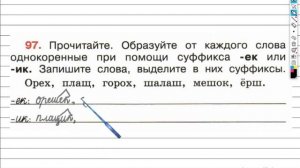 97. Прочитайте. Образуйте от каждого слова
однокоренные при помощи суффикса -ек или
-ик. Запишите слова, выделите в них суффиксы.
Орех, плащ, горох, шалаш, мешок, ёрш.
-ек: орешек,
-ик: плащик,